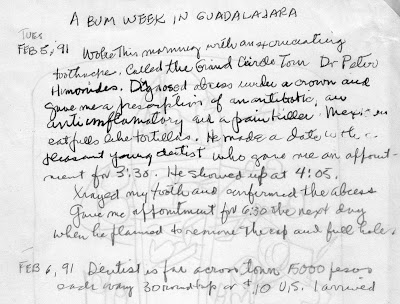 A BUM WEEK IN GUADALAJARA
TUES.
FEB 5, 91 Woke this morning with an excruciating
toothache. Called the Grand Circle Tour Dr Peter
Himonides. Dignosed abcess under a crown and
gave me a prescription of an antibiotic, an
antiinflamatory and a painkiller. Mexican
eat pills like tortillas. He made a date with
pleasant young dentist who gave me an appoint-
ment for 3:30. He showed up at 4:05.
Xrayed my tooth and confirmed the abcess
Gave me appointment for 6:30 the next day
when he planned to remove the cap and fill hole.
FEB 6, 91 Dentist is far across town 15000 pesos
each way 30 round trip or $10 U.S. I arrived